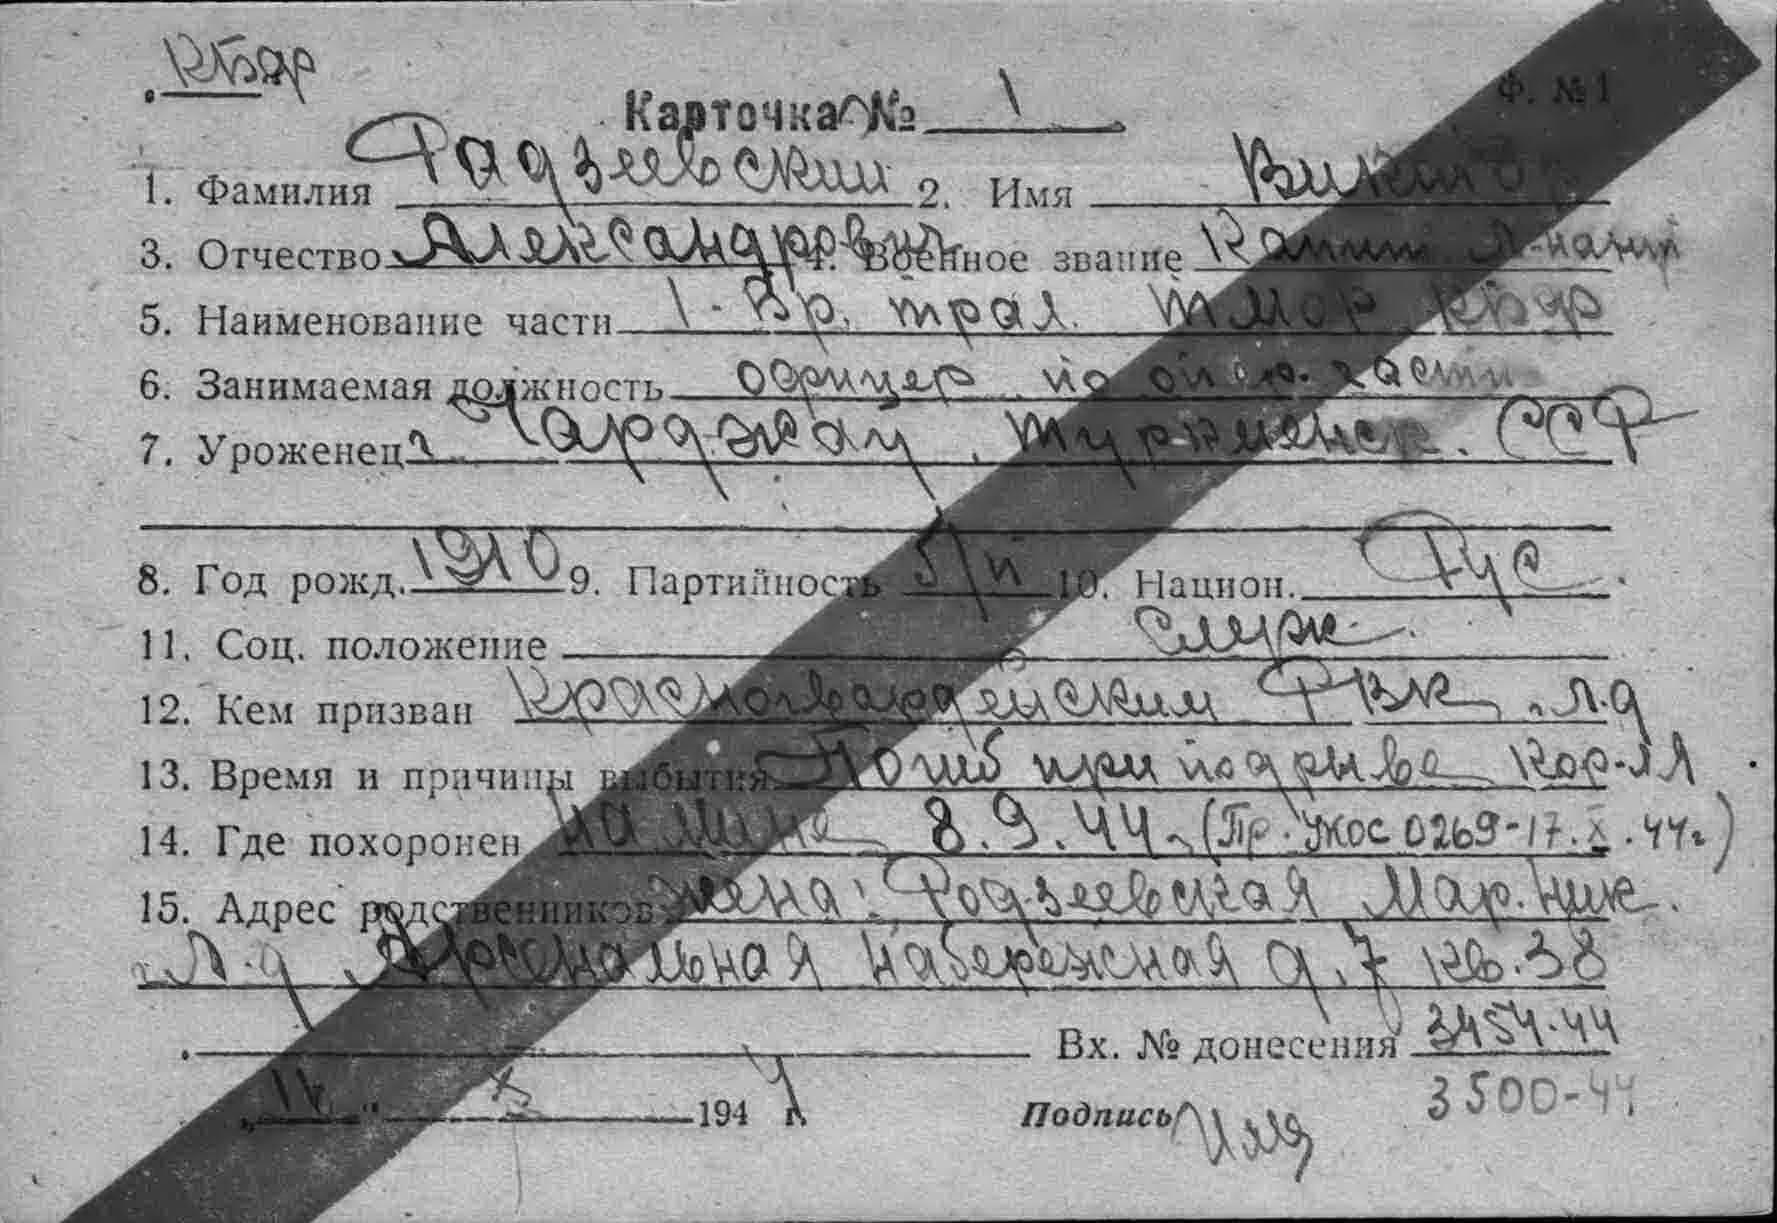 КБФ
Карточка № 1
Ф. №1
1. Фамилия Радзеевский 2. Имя Виктор
3. Отчество Александрович 4. Военное звание Капит. л-нант
5. Наименование части 1-Бр. трал. ТМОР КБФ
6. Занимаемая должность офицер по опер. части
7. Уроженец г Чарджау, Туркменск. ССР
8. Год рожд. 1910 9. Партийность б/п 10. Национ. Рус.
11. Соц. положение служ.
12. Кем призван Красногвардейским РВК г. Л.д
13. Время и причины выбытия Погиб при подрыве кор-ля
14. Где похоронен на мине 8.9.44г (Пр. УКОС 0269-17.X.44г)
15. Адрес родственников жена: Радзеевская Мар. Ник.
г. Л.д Арсенальная набережная д. 7 кв. 38
Вх. № донесения 3454-44
3500-44
„ “ X 1944 г.
Подпись